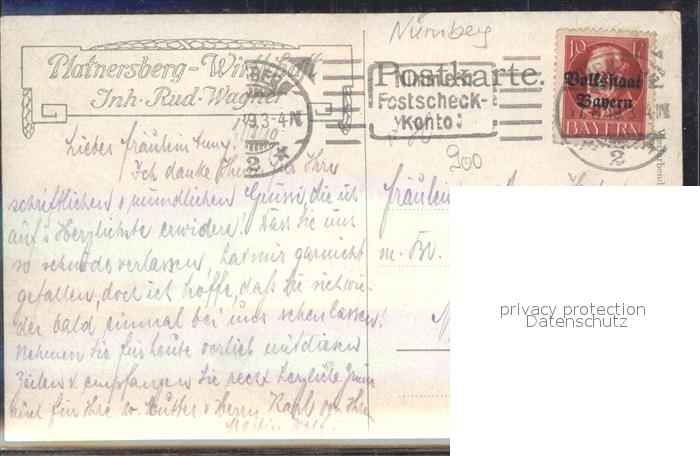 Nürnberg
Platnersberg-Wirthschaft
Inh. Rud. Wagner
Postkarte.
Postscheck-
Konto!
19.3-4N
2
10 Pf.
Volksstaat
Bayern
BAYERN
19.3-4N
2
900
Liebes Fräulein
Ich danke Ihnen für Ihre
schriftlichen & mündlichen Grüsse, die ich
auf's Herzlichste erwidere. Dass Sie uns
so schnöde verlassen, hat mir garnicht
gefallen, doch ich hoffe, daß Sie sich wie-
der bald einmal bei uns sehen lassen!
Nehmen Sie für heute vorlieb mit diesen
Zeilen & empfangen Sie recht herzliche Grüsse
auch für Ihre w. Mutter & Herrn Karl von Ihrem
Martin
Fräulein
m. Br.
privacy protection
Datenschutz